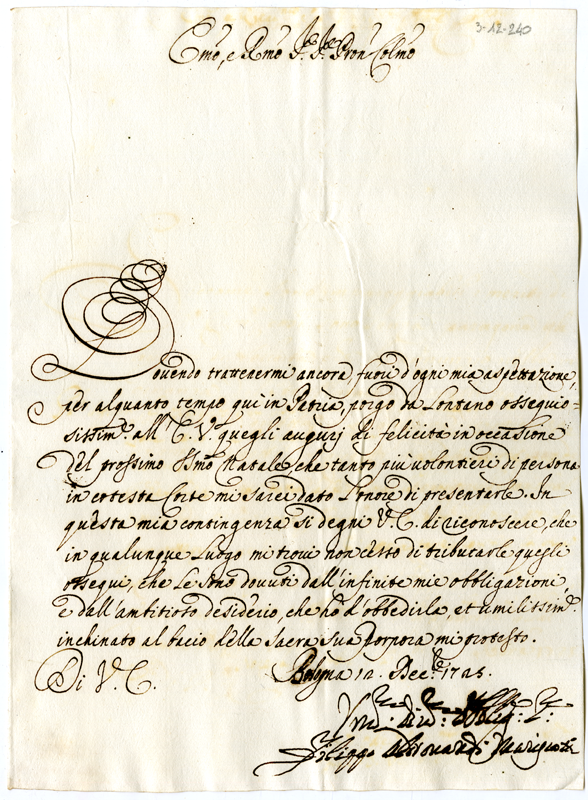 3-12-240
Emo, e Rmo Sr. Sr. Pron Colmo
Dovendo trattenermi ancora, fuori d'ogni mia aspettazione,
per alquanto tempo quì in Patria, porgo da Lontano ossequio=
sissime. all'E. V. quegli augurj di felicità in occasione
del prossimo SSmo Natale, che tanto più volontieri di persona
in cotesta Corte mi sarei dato L'onore di presentarle. In
questa mia contingenza si degni V. E. di riconoscere, che
in qualunque Luogo mi trovi non cesso di tributarle quegli
ossequi, che Le sono dovuti dall'infinite mie obbligazioni,
e dall'ambitioso desiderio, che hò d'obbedirla, et umilissime.
inchinato al bacio della Sacra Sua Porpora mi protesto.
Di V. E.
Bologna 12. Dece. 1725.
Umo. Divo. Obblig. Sr.
Filippo Aldrovandi Mariscotti